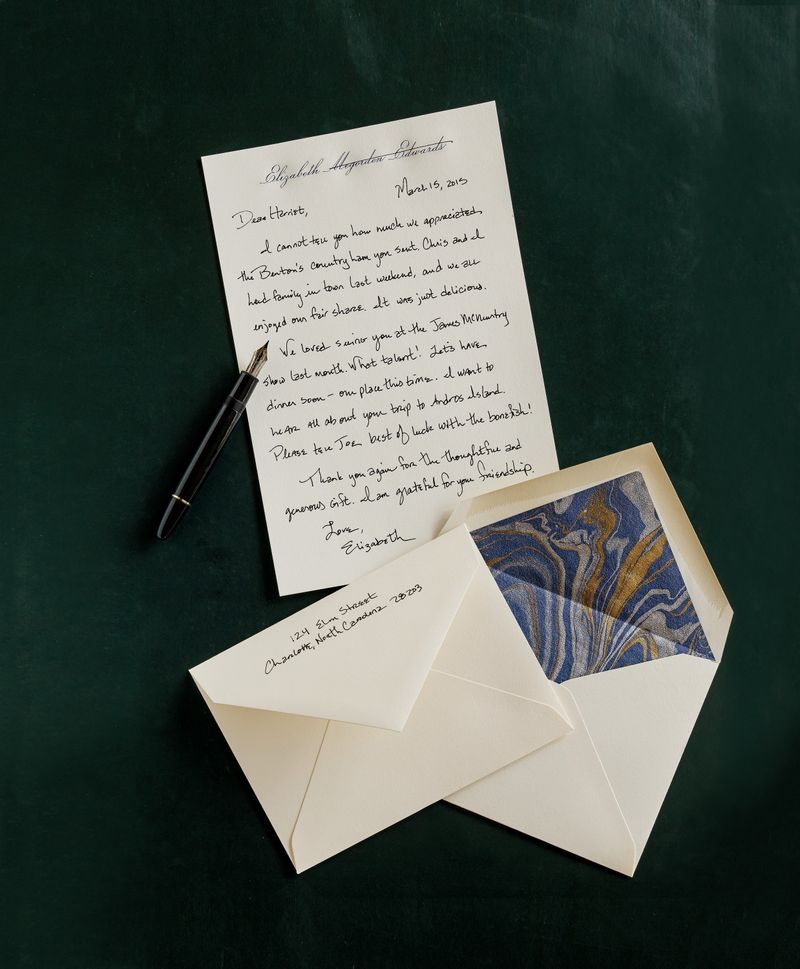 Elizabeth Mcgorden Edwards
March 15, 2015
Dear Harriet,
I cannot tell you how much we appreciated
the Benton's country ham you sent. Chris and I
had family in town last weekend, and we all
enjoyed our fair share. It was just delicious.
We loved seeing you at the James McMurtry
show last month. What talent! Let's have
dinner soon – our place this time. I want to
hear all about your trip to Andros Island.
Please tell Joe best of luck with the bonefish!
Thank you again for the thoughtful and
generous gift. I am grateful for your friendship.
Love,
Elizabeth
124 Elm Street
Charlotte, North Carolina 28203